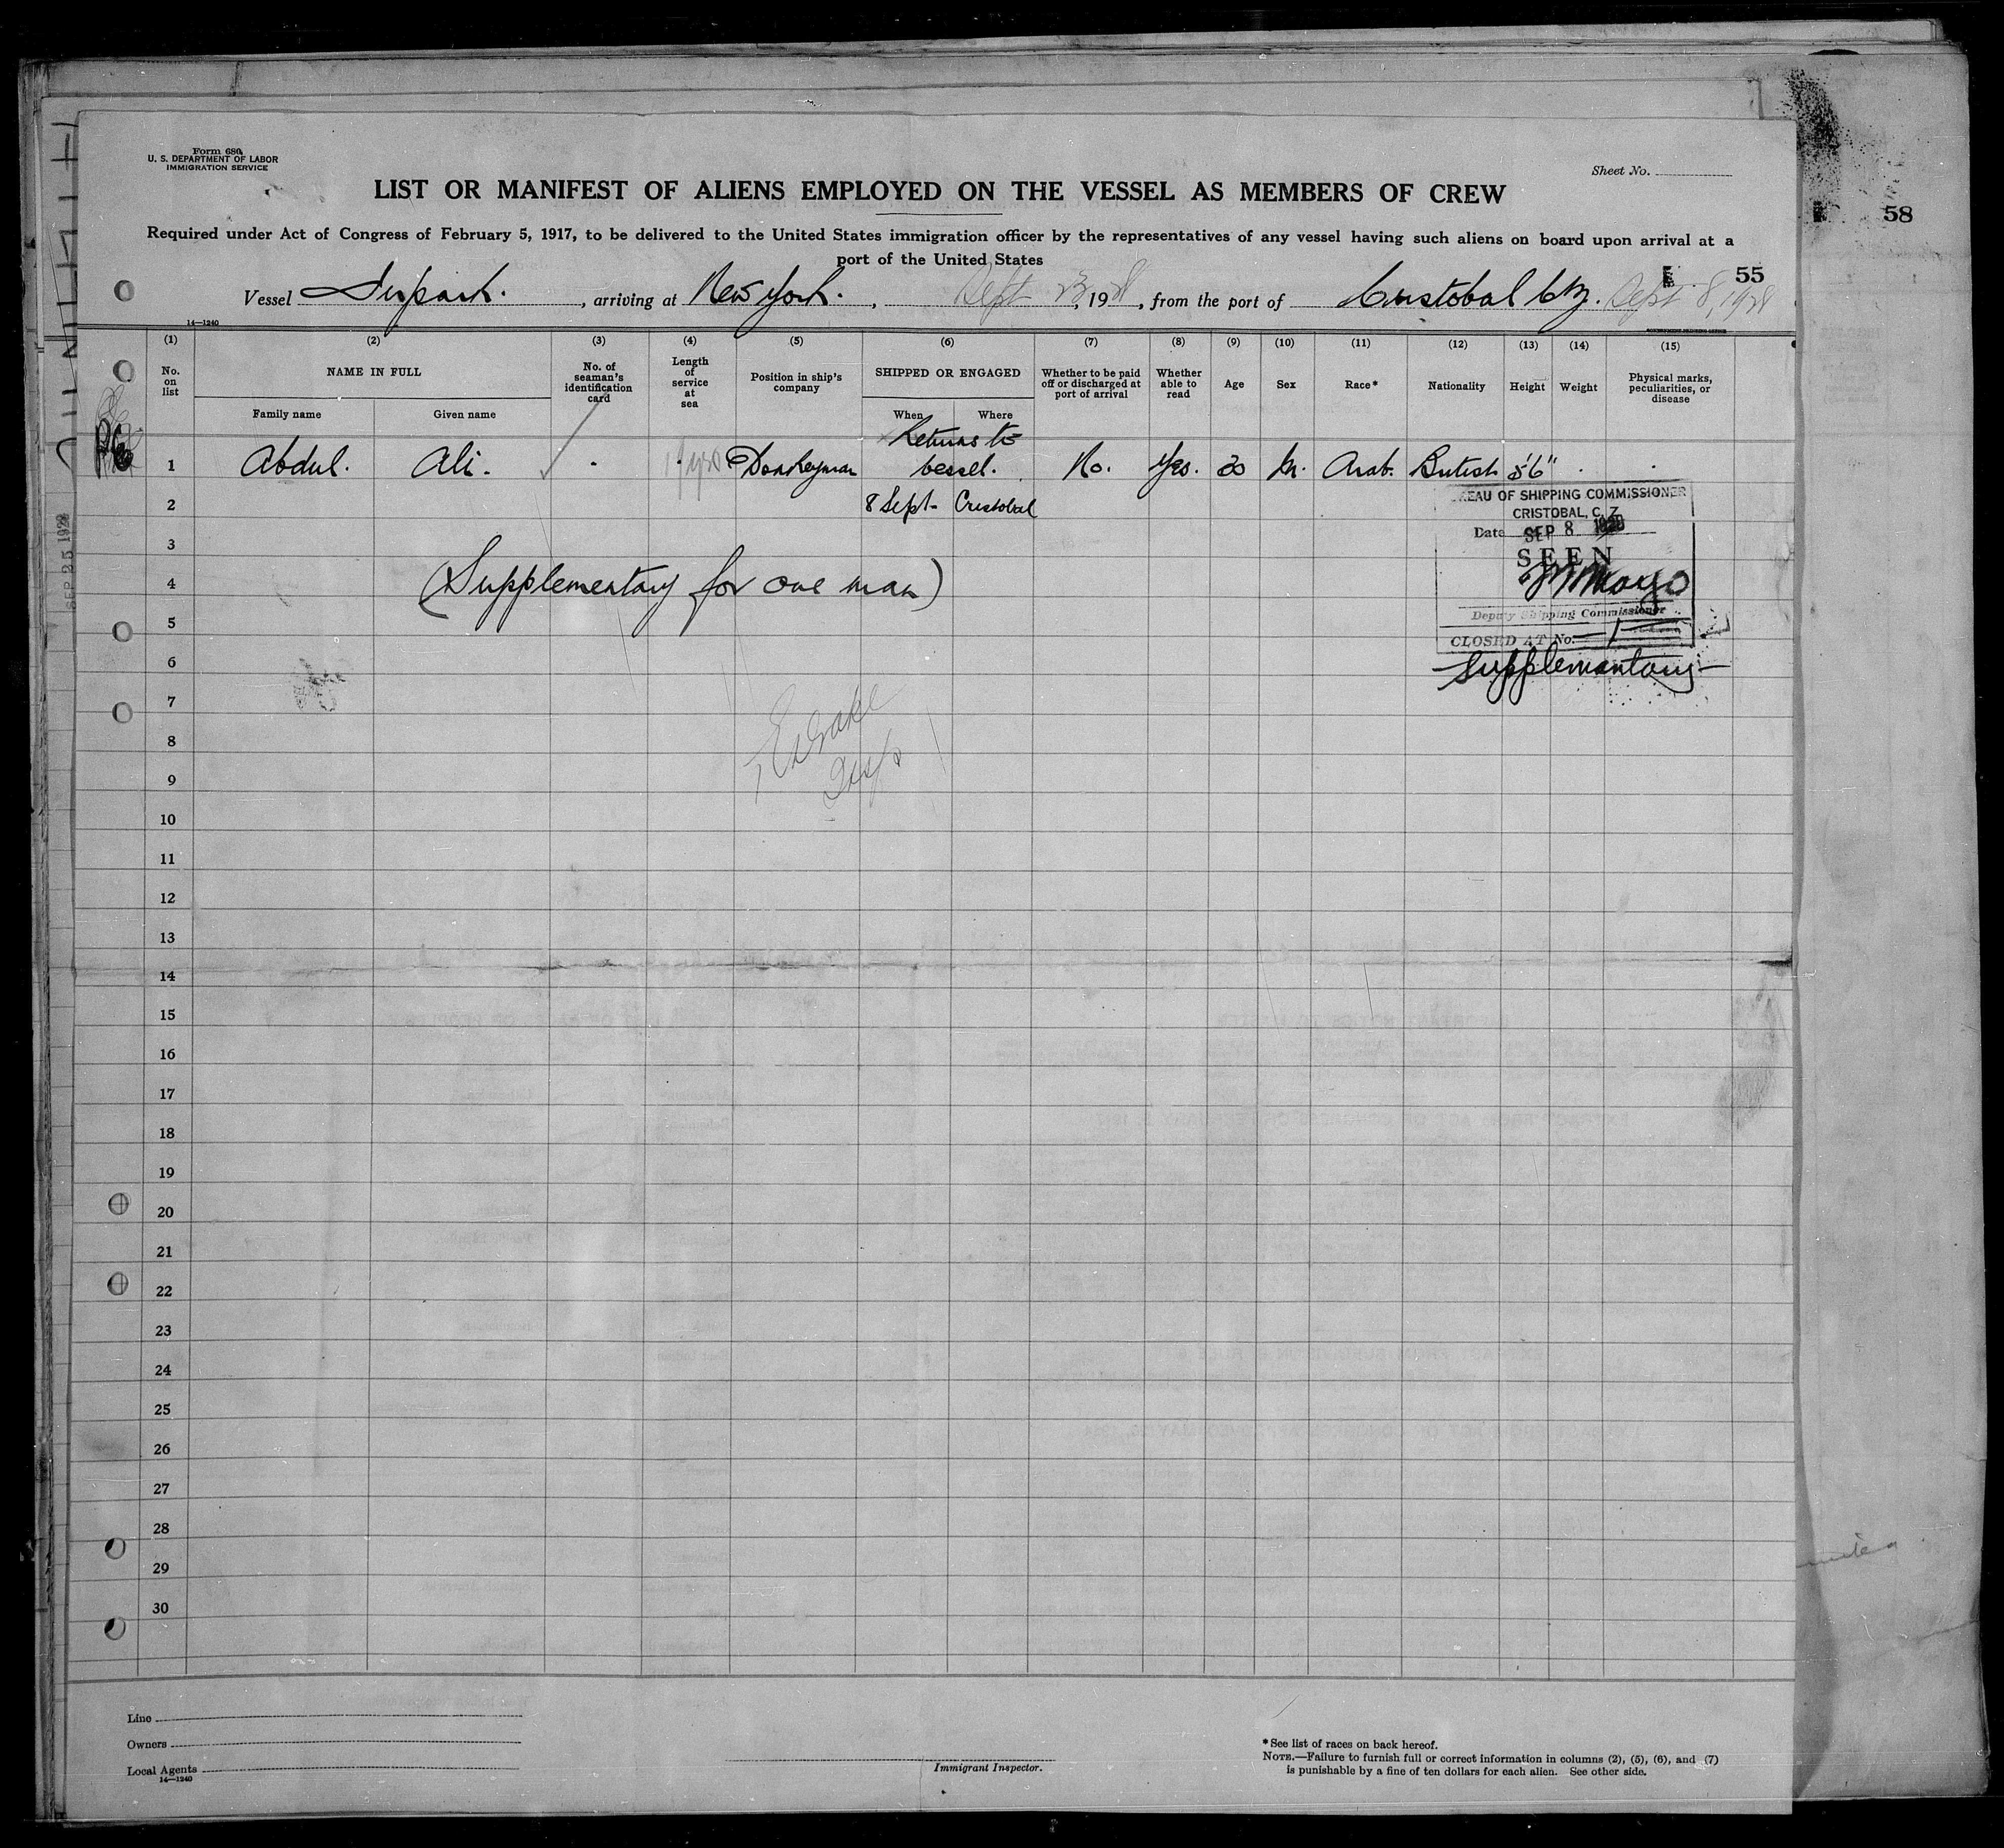 Form 680
U. S. DEPARTMENT OF LABOR
IMMIGRATION SERVICE
Sheet No.
LIST OR MANIFEST OF ALIENS EMPLOYED ON THE VESSEL AS MEMBERS OF CREW
58
Required under Act of Congress of February 5, 1917, to be delivered to the United States immigration officer by the representatives of any vessel having such aliens on board upon arrival at a
port of the United States
55
Vessel , arriving at New York. , Sept 23 1928 , from the port of Cristobal CZ. Sept. 8, 1928
14—1240
GOVERNMENT PRINTING OFFICE
(1) (2) (3) (4) (5) (6) (7) (8) (9) (10) (11) (12) (13) (14) (15)
No. on list
NAME IN FULL
Family name
Given name
No. of seaman's identification card
Length of service at sea
Position in ship's company
SHIPPED OR ENGAGED
When
Where
Whether to be paid off or discharged at port of arrival
Whether able to read
Age
Sex
Race*
Nationality
Height
Weight
Physical marks, peculiarities, or disease
Returns to
1 Abdul. Ali. Donkeyman vessel. No. Yes. 30 M. Arab. British 5'6"
2 8 Sept. Cristobal
BUREAU OF SHIPPING COMMISSIONER
CRISTOBAL, C. Z.
Date SEP 8 1928
SEEN
Deputy Shipping Commissioner
CLOSED AT No. 1
Supplementary
SEP 25 1928
3
4 (Supplementary for one man)
5
6
7
Drake
Insp
8
9
10
11
12
13
14
15
16
17
18
19
20
21
22
23
24
25
26
27
28
29
30
Line
Owners
Local Agents
14—1240
Immigrant Inspector.
*See list of races on back hereof.
NOTE.—Failure to furnish full or correct information in columns (2), (5), (6), and (7)
is punishable by a fine of ten dollars for each alien. See other side.